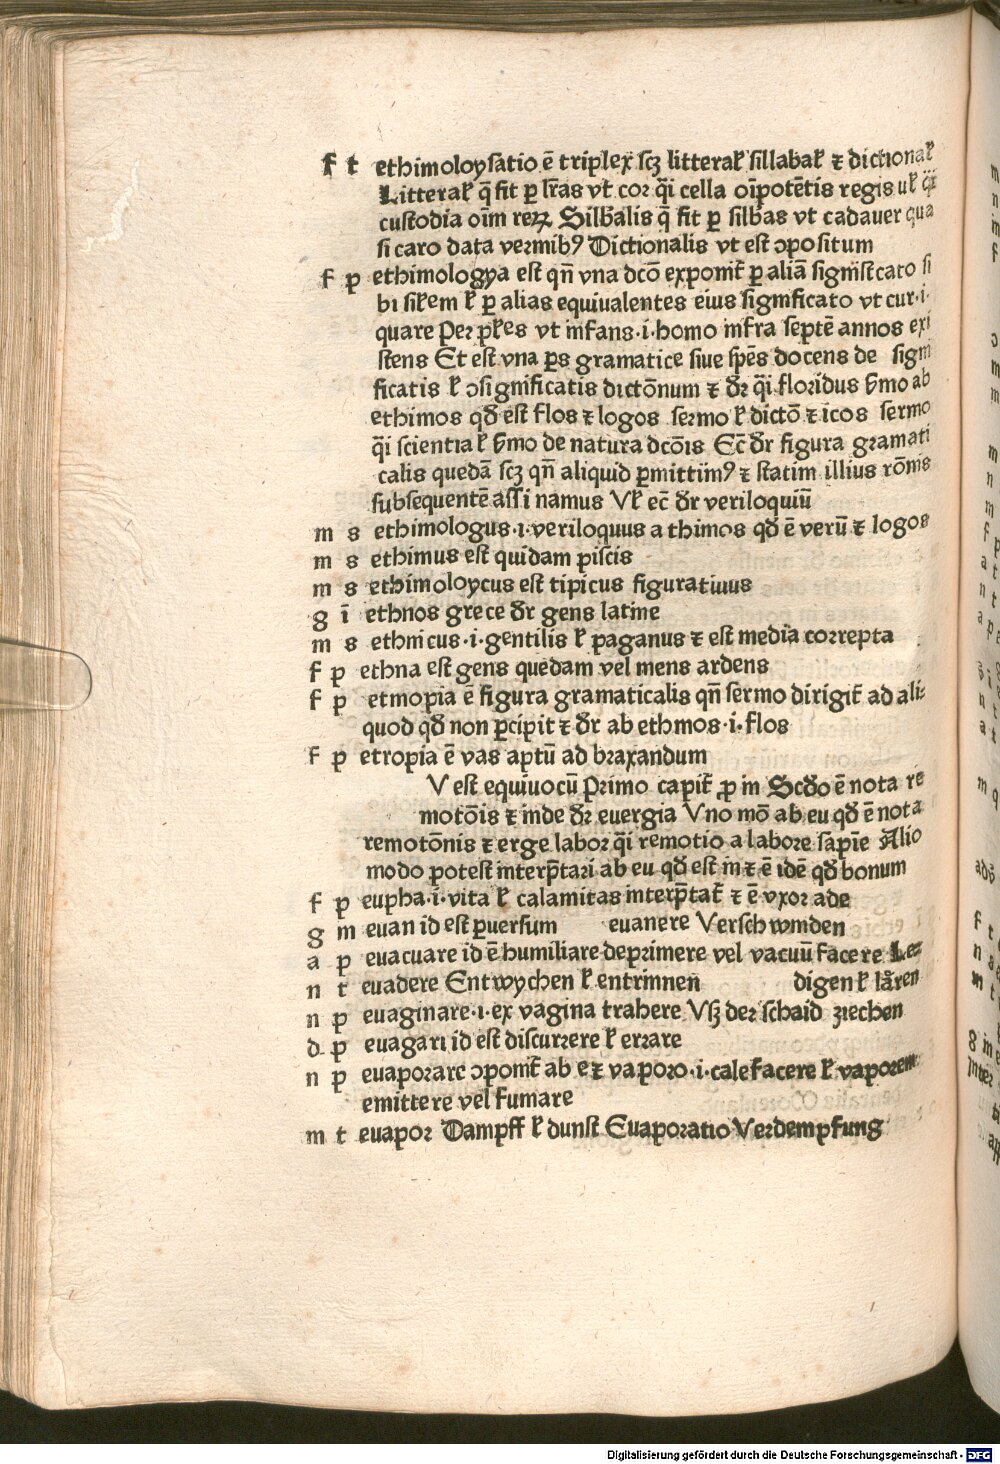 f t ethimoloysatio ē triplex scꝫ litteraꝉ sillabaꝉ ⁊ dictionaꝉ
Litteraꝉ q̄ fit ꝑ lr̄as vt cor q̄i cella oīpotētis regis uꝉ q̄i
custodia oīm reꝝ Silb̄alis q̄ fit ꝑ silb̄as vt cadauer qua
si caro data vermibꝰ Dictionalis vt est ɔpositum
f p ethimologya est qn̄ vna dcō exponit̄ ꝑ aliā signīficato si
bi siꝉem ꝉ ꝑ alias equiualentes eius signīficato vt cur·i·
quare Per pꝉes vt infans·i·homo infra septē annos exi
stens Et est vna ꝑs gramatice siue sp̄ēs docens de signī
ficatis ꝉ ɔsignificatis dictōnum ⁊ dr̄ q̄i floridus s̄mo ab
ethimos qd̄ est flos ⁊ logos sermo ꝉ dictō ⁊ icos sermo
q̄i scientia ꝉ s̄mo de natura dcōis Ec̄ dr̄ figura gramati
calis quedā scꝫ qn̄ aliquid ꝑmittimꝰ ⁊ statim illius rōms
subsequentē assi namus Vꝉ ec̄ dr̄ veriloquiū
m s ethimologus·i·veriloquus a thimos qd̄ ē verū ⁊ logos
m s ethimus est quidam piscis
m s ethimoloycus est tipicus figuratiuus
g ī ethnos grece dr̄ gens latine
m s ethnicus·i·gentilis ꝉ paganus ⁊ est media correpta
f p ethna est gens quedam vel mens ardens
f p etmopia ē figura gramaticalis qn̄ sermo dirigit̄ ad ali:
quod qd̄ non ꝑcipit ⁊ dr̄ ab ethmos·i·flos
f p etropia ē vas aptū ad braxandum
V est equiuocū Primo capit̄ ꝓ in Scd̄o ē nota re
motōis ⁊ inde dr̄ euergia Vno mō ab eu qd̄ ē nota
remotōnis ⁊ erge labor q̄i remotio a labore sapīe Alio
modo potest interp̄tari ab eu qd̄ est in ⁊ ē idē qd̄ bonum
f p eupha·i·vita ꝉ calamitas interp̄tat̄ ⁊ ē vxor ade
g m euan id est ꝑuersum euanere Verschwinden
a p euacuare id ē humiliare deprimere vel vacuū facere Le⸗
n t euadere Entwychen ꝉ entrinnen digen ꝉ lären
n p euaginare·i·ex vagina trahere Vß der schaid ziechen
d p euagari id est discurrere ꝉ errare
n p euaporare ɔponit̄ ab e ⁊ vaporo·i·calefacere ꝉ vaporem
emittere vel fumare
m t euapor Dampff ꝉ dunst Euaporatio Verdempfung
Digitalisierung gefördert durch die Deutsche Forschungsgemeinschaft - DFG